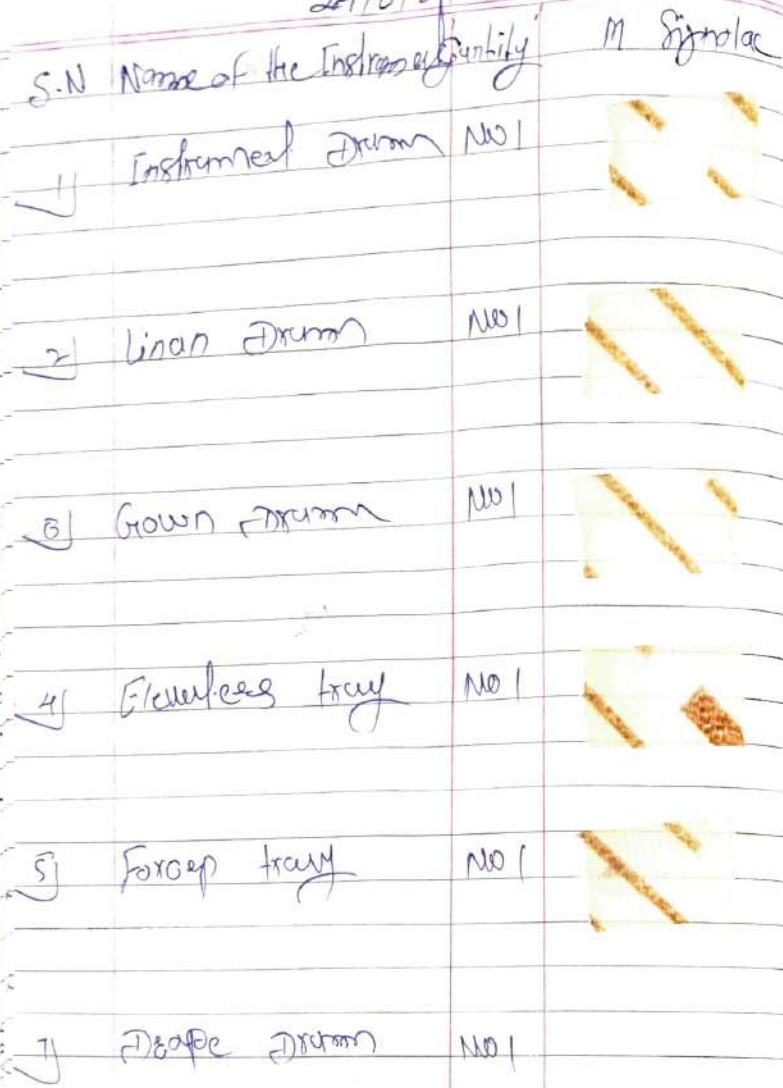 S.N Name of the Instrument Quntity M Signolac
1) Instrument Drum NO 1
2) Linan Drum NO 1
3) Gown Drum NO 1
4) tray NO 1
5) Forcep tray NO 1
7) Drape Drum NO 1